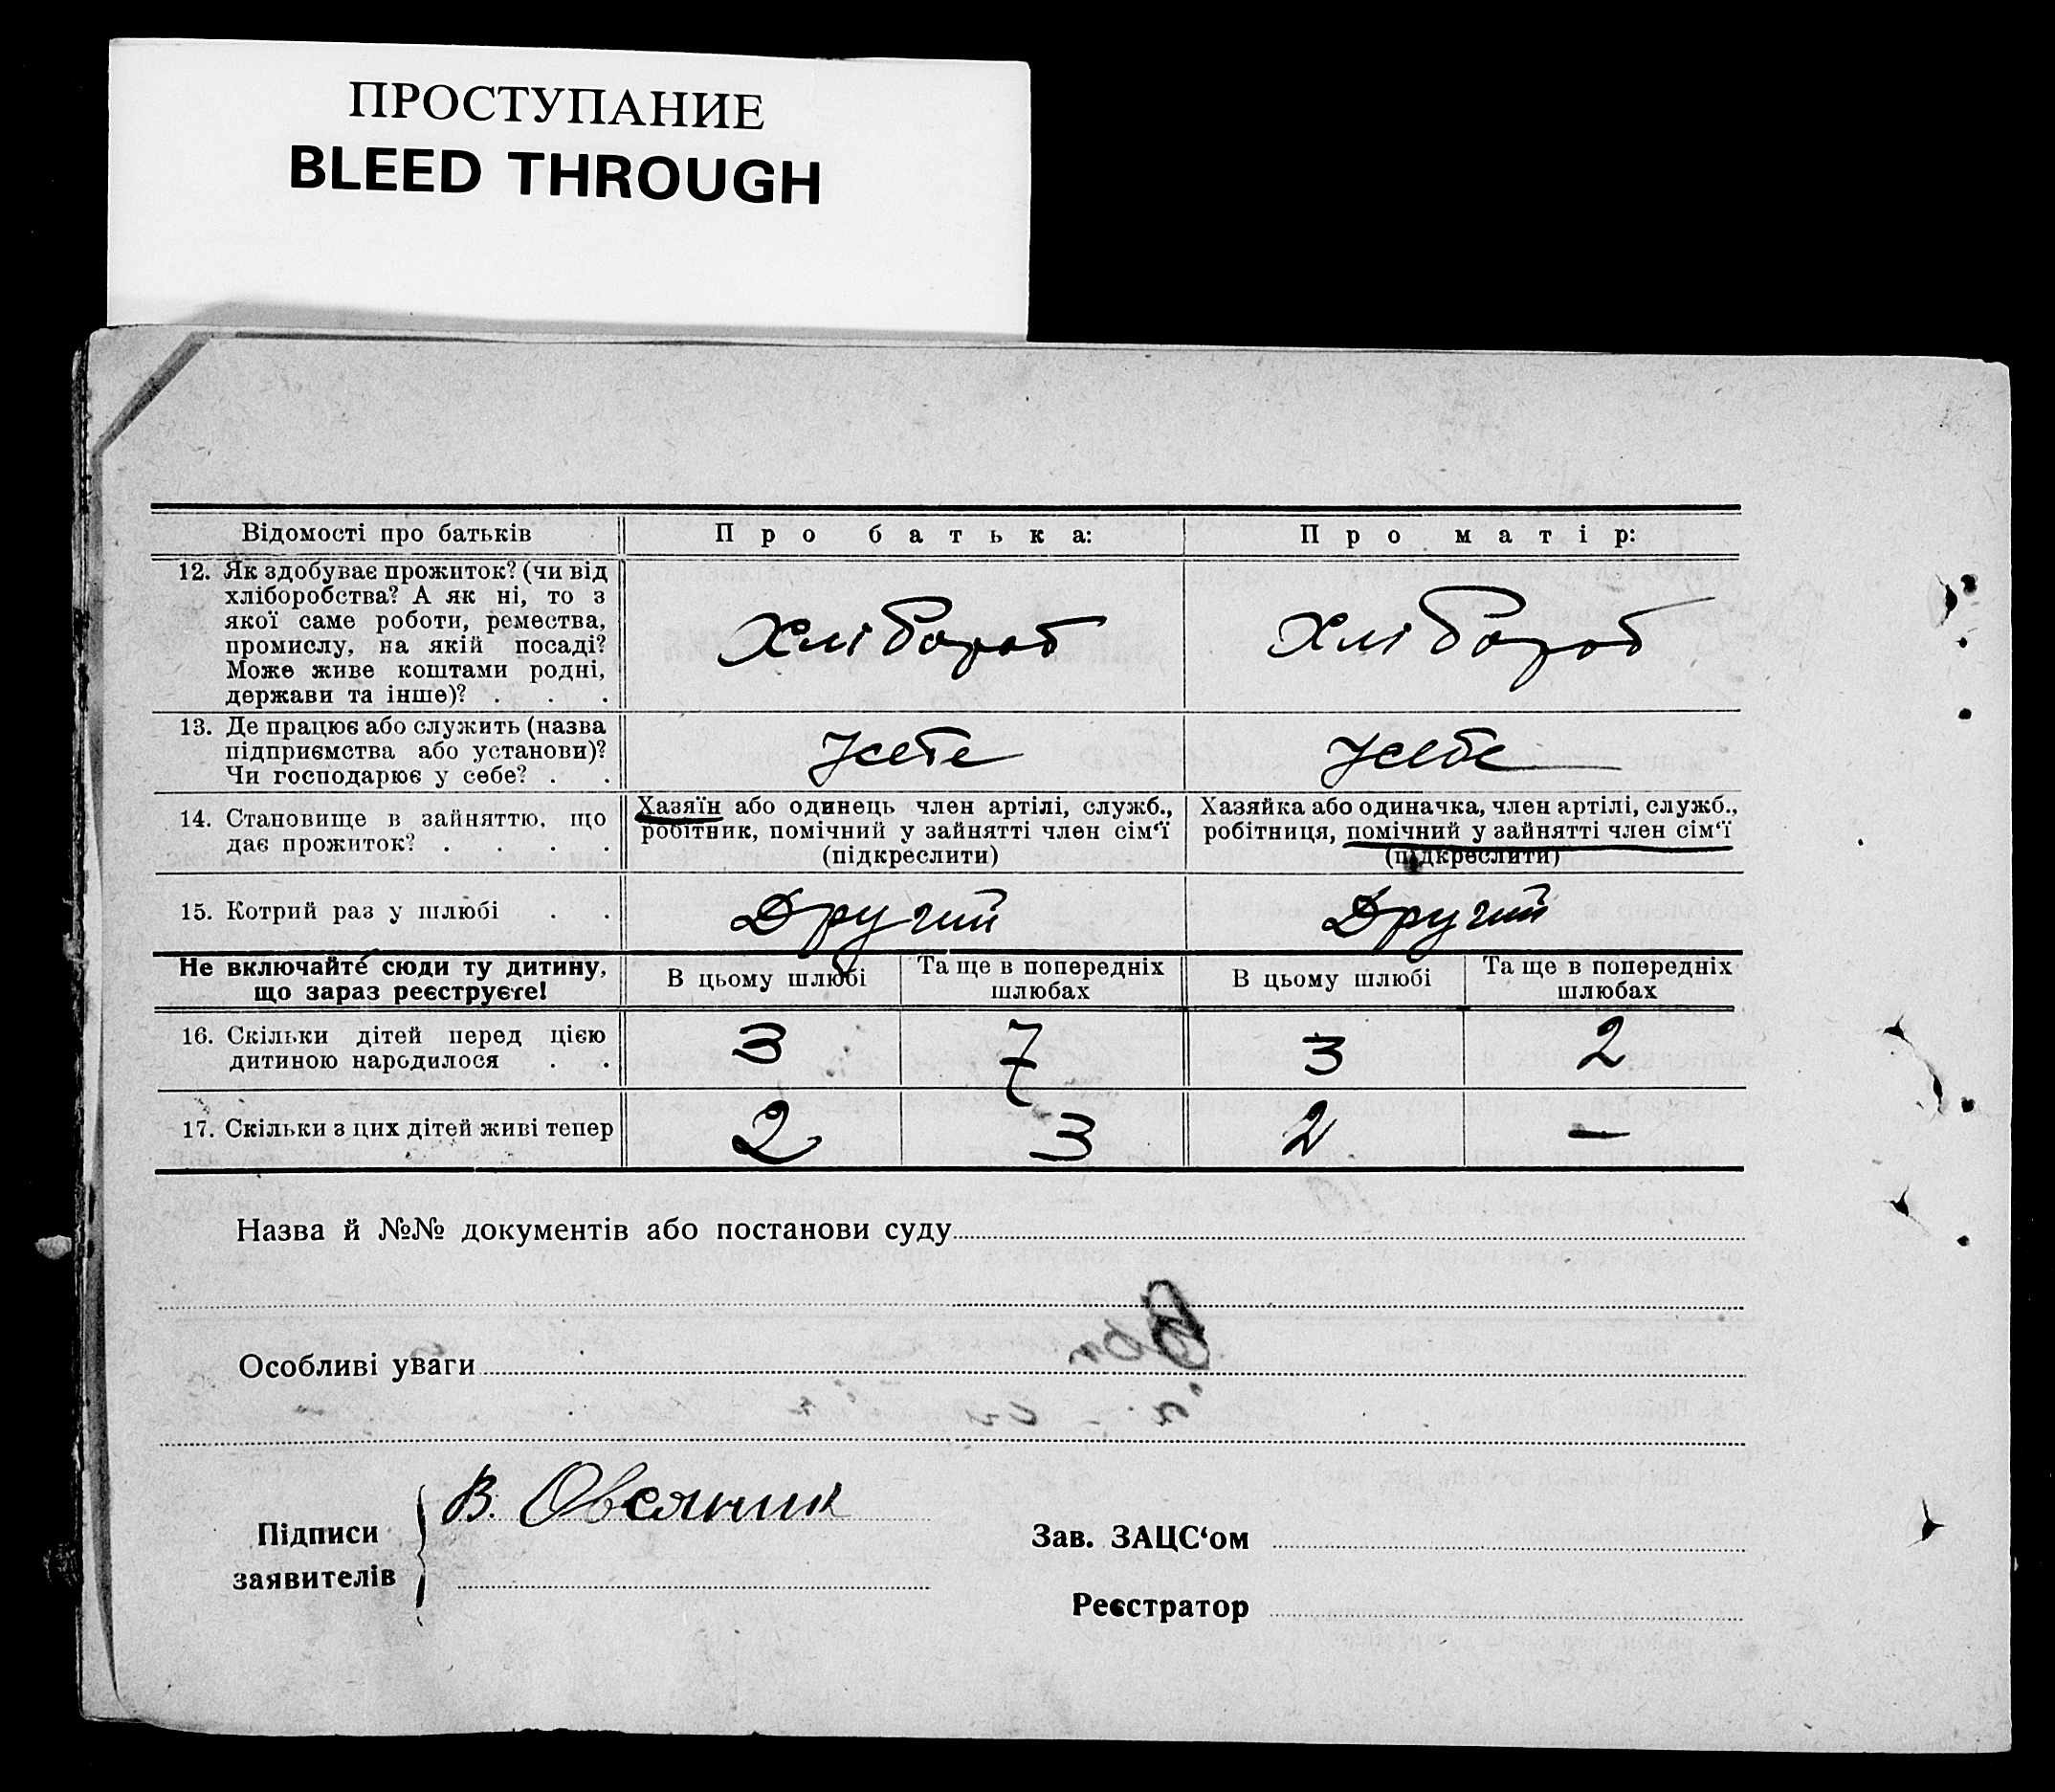 ПРОСТУПАНИЕ
BLEED THROUGH
Відомості про батьків
Про батька:
Про матір:
12. Як здобуває прожиток? (чи від
хліборобства? А як ні, то з
якої саме роботи, ремества,
промислу, на якій посаді?
Може живе коштами родні,
держави та інше)? . . .
Хлібороб
Хлібороб
13. Де працює або служить (назва
підприємства або установи)?
Чи господарює у себе? . .
У себе
У себе
14. Становище в зайняттю, що
дає прожиток? . . . .
Хазяїн або одинець член артілі, служб.,
робітник, помічний у зайнятті член сім‘ї
(підкреслити)
Хазяйка або одиначка, член артілі, служб.,
робітниця, помічний у зайнятті член сім‘ї
(підкреслити)
15. Котрий раз у шлюбі . .
Другий
Другий
Не включайте сюди ту дитину,
що зараз реєструєте!
В цьому шлюбі
Та ще в попередніх
шлюбах
В цьому шлюбі
Та ще в попередніх
шлюбах
16. Скільки дітей перед цією
дитиною народилося . .
3
7
3
2
17. Скільки з цих дітей живі тепер
2
3
2
—
Назва й №№ документів або постанови суду
Особливі уваги
Підписи
заявителів
В. Овсяник
Зав. ЗАЦС‘ом
Реєстратор